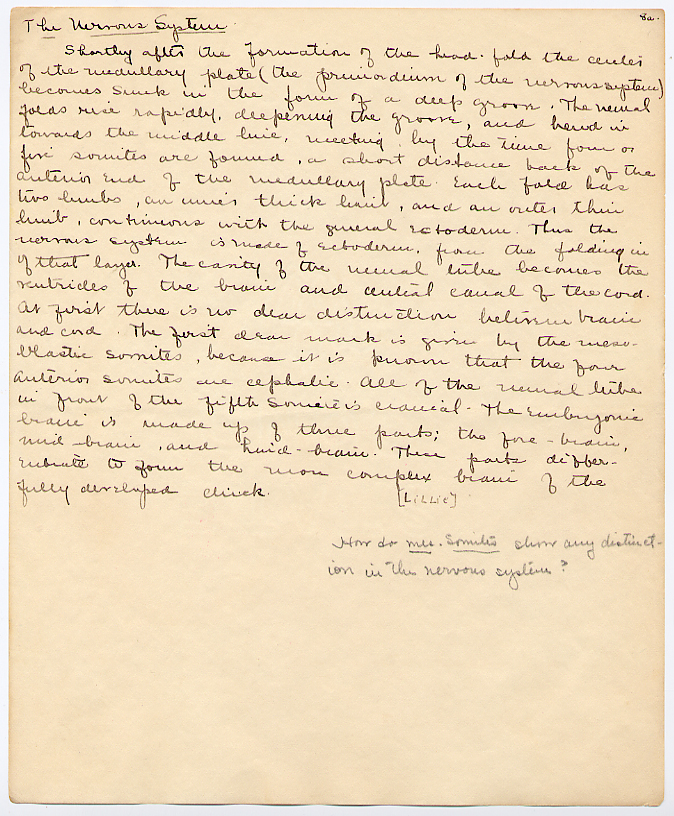 8a.
The Nervous System
Shortly after the formation of the head-fold the center
of the medullary plate (the primordium of the nervous system)
becomes sunk in the form of a deep groove. The neural
folds rise rapidly, deepening the groove, and bend in
towards the middle line, meeting by the time four or
five somites are formed, a short distance back of the
anterior end of the medullary plate. Each fold has
two limbs, an inner thick limb, and an outer thin
limb, continuous with the general ectoderm. Thus the
nervous system is made of ectoderm, from the folding in
of that layer. The cavity of the neural tube becomes the
ventricles of the brain and central canal of the cord.
At first there is no clear distinction between brain
and cord. The first clear mark is given by the meso-
blastic somites, because it is known that the four
anterior somites are cephalic. All of the neural tube
in front of the fifth somite is cranial. The Embryonic
brain is made up of three parts; the fore-brain,
mid-brain, and hind-brain. These parts differ-
entiate to form the more complex brain of the
fully developed chick. [Lillie]
How do mes. somites show any distinct-
ion in the nervous system?